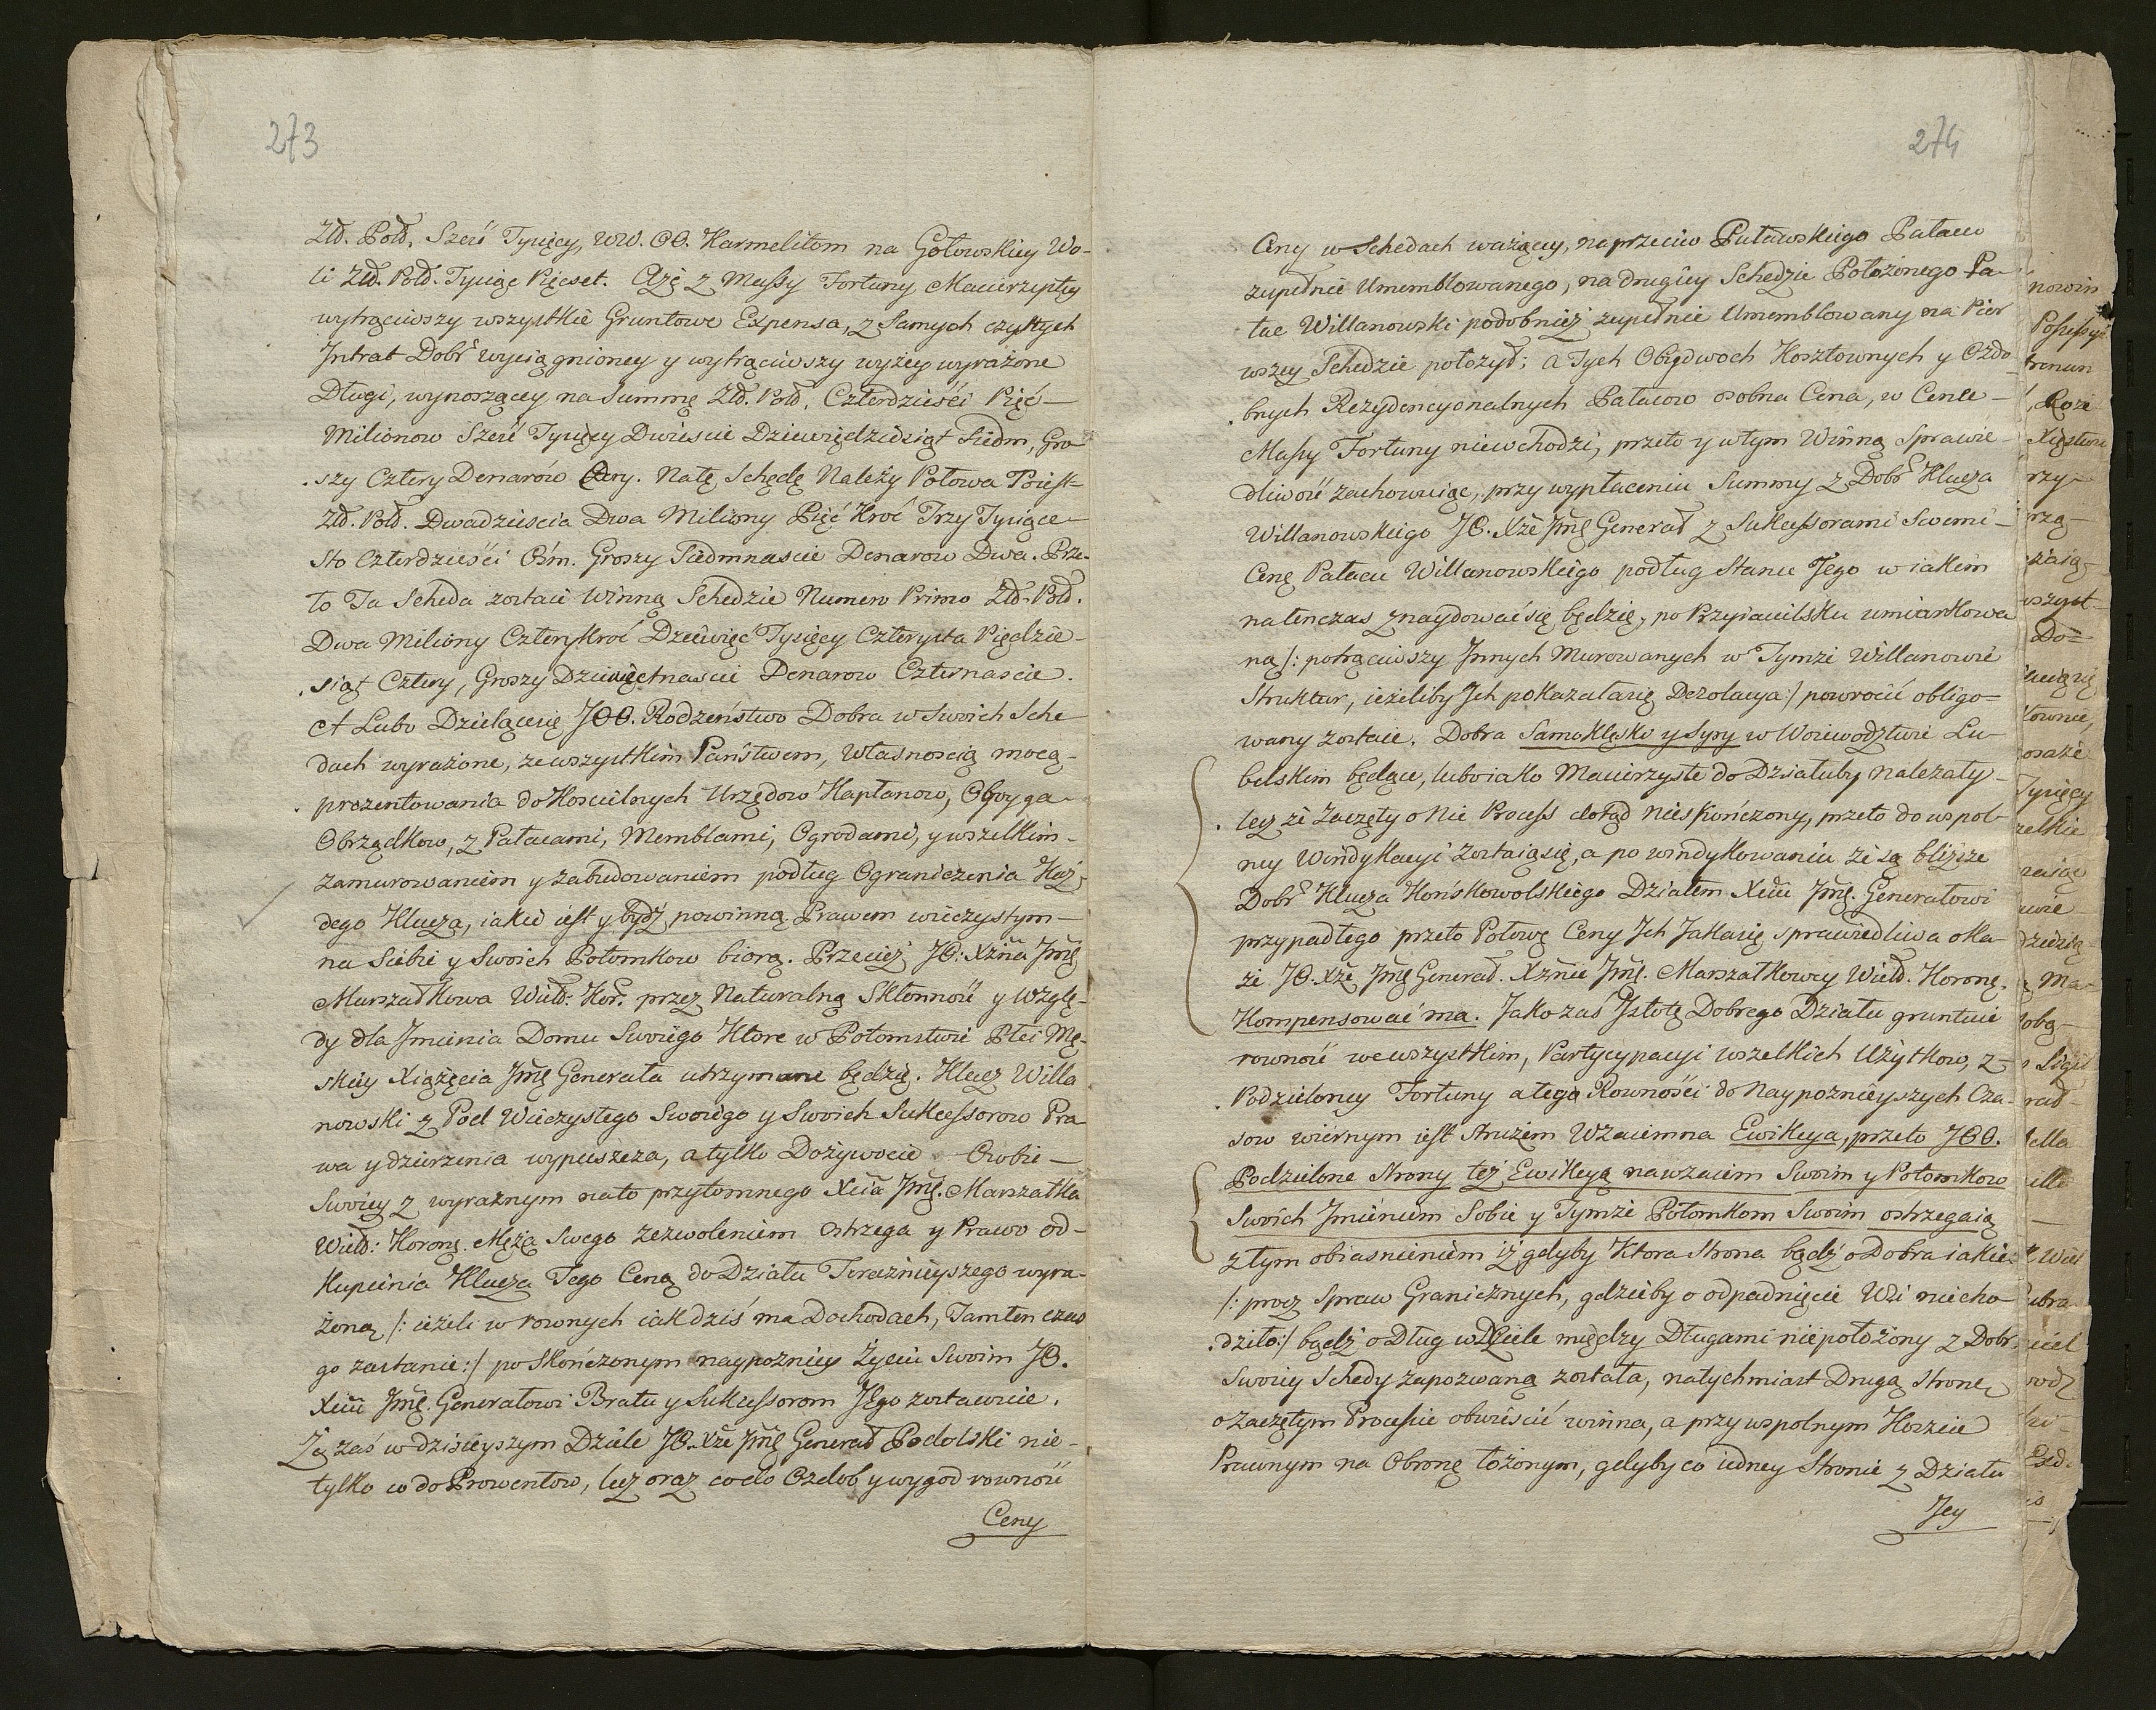 273
Złł. Poł. Szesć Tysięcy, WW. OO. Karmelitom na Gołowskiey Wo-
li Złł. Poł. Tysiąc Pięcset. Aże z Massy Fortuny Macierzystey
wytrąciwszy wszystkie Gruntowe Expensa, z Samych czystych
Jntrat Dobr wyciągnioney y wytrąciwszy wyżey wyrażone
Długi, wynoszącey na Summę Złł. Poł. Czterdzieści Pięć
Milionow Sześć Tysięcy Dwiescie Dziewiędziesiąt Siedm, Gro-
szy Cztery Denarów Cztery. Natę Schedę Należy Połowa To iest
Złł. Poł. Dwadziescia Dwa Miliony Pięć Kroć Trzy Tysiące
Sto Czterdzieści Ośm. Groszy Siedmnascie Denarow Dwa. Prze-
to Ta Scheda zostaie winną Schedzie Numero Primo Złł. Poł.
Dwa Miliony Czterykroć Dziewięć Tysięcy Czterysta Pięędzie-
siąt Cztery, Groszy Dziewiętnascie Denarow Czternascie.
A Lubo Dzielącesię JOO. Rodzeństwo Dobra w Swoich Sche
dach wyrażone, zewszystkim Państwem, własnoscią mocą
prezentowania do Koscielnych Urzędow Kapłanow, Oboyga
Obrządkow, z Pałacami, Memblami, Ogrodami, y wszelkim
zamurowaniem y zabudowaniem podług Ograniczenia Każ-
dego Klucza, iakie iest y bydź powinną Prawem wieczystym
na Siebie y Swoich Potomkow biorą. Przecież JO: Xżna Jmę
Marszałkowa Wielł: Kor. przez Naturalną Skłonność y wzglę-
dy dla Jmienia Domu Swoiego Ktore w Potomstwie Płci Mę-
skiey Xiążęcia Jmę Generała utrzymane będzie. Klucz Willa
nowski z Pod Wieczystego Swoiego y Swoich Sukcessorow Pra
wa y dzierżenia wypuszcza, a tylko Dożywocie Osobie
Swoiey z wyraznym nato przytomnego Xcia Jmę. Marszałka
Wielł: Koronę. Męża Swego zezwoleniem ostrzega y Prawo od-
kupienia Klucza Tego Ceną do Działu Teraznieyszego wyra-
żoną /: ieżeli w rownych iak dziś ma Dochodach, Tamten czas
go zastanie:/ po Skończonym naypozniey Życiu Swoim JO.
Xciu Jmę. Generałowi Bratu y Sukcessorom Jego zostawuie.
Że zaś w dzisieyszym Dziele JO. Xże Jmę Generał Podolski nie-
tylko co do Prowentow, lecz oraz co do Ozdob y wygod rowność
Ceny
274
Ceny w Schedach ważący, naprzeciw Puławskiego Pałacu
zupełnie Umemblowanego, na drugiey Schedzie Położonego Pa-
łac Willanowski podobnież zupełnie Umemblowany na Pier
wszey Schedzie położył: a Tych Obydwoch Kosztownych y Ozdo
bnych Rezydencyonalnych Pałacow osobna Cena, w Cenie
Massy Fortuny niewchodzi, przeto y wtym Winną Sprawie-
dliwość zachowuiąc, przy wypłaceniu Summy z Dobr Klucza
Willanowskiego JO. Xże Jmę Generał z Sukcessorami Swemi
Cenę Pałacu Willanowskiego podług Stanu Jego w iakim
natenczas znaydować się będzie, po Przyiacielsku umiarkowa
ną /: potrąciwszy Jnnych Murowanych w Tymże Willanowie
Struktur, ieżeliby Jch pokazałasię Dezolacya:/ powrócić obligo-
wany zostaie. Dobra Samoklęsko y Syry w Woiewodztwie Lu-
belskim będące, lubo iako Macierzyste do Działuby należały
lecz że Zaczęty o Nie Process dotąd nieskończony, przeto do wspol-
ney Windykacyi zostaiąsię, a po windykowaniu że są bliższe
Dobr Klucza Końskowolskiego Działem Xciu Jmę. Generałowi
przypadłego przeto Połowę Ceny Jch Jakasię sprawiedliwa oka-
że JO. Xże Jmę Generał. Xżnie Jmę. Marszałkowey Wielł. Koronę.
Kompensować ma. Jako zaś Jstotę Dobrego Działu gruntuie
rowność we wszystkim, Partycypacyi wszelkich Użytkow, z
Podzieloney Fortuny a tego Rowności do Naypoznieyszych Cza-
sow wiernym iest strużem Wzaiemna Ewikcya, przeto JOO.
Podzielone Strony też Ewikcyą nawzaiem Swoim y Potomkow
Swoich Jmieniem Sobie y Tymże Potomkom Swoim ostrzegaią
z tym obiasnieniem iż gdyby Ktora Strona bądź o Dobra iakie
/: procz Spraw Granicznych, gdzieby o odpadnięcie Wsi niecho-
dziło:/ bądź o Dług w Dziele między Długami niepołożony z Dobr
Swoiey Schedy zapozwaną została, natychmiast Drugą Stronę
o Zaczętym Processie obwieścić winna, a przy wspolnym Koszcie
Prawnym na Obronę łożonym, gdyby co iedney Stronie z Działu
Jey